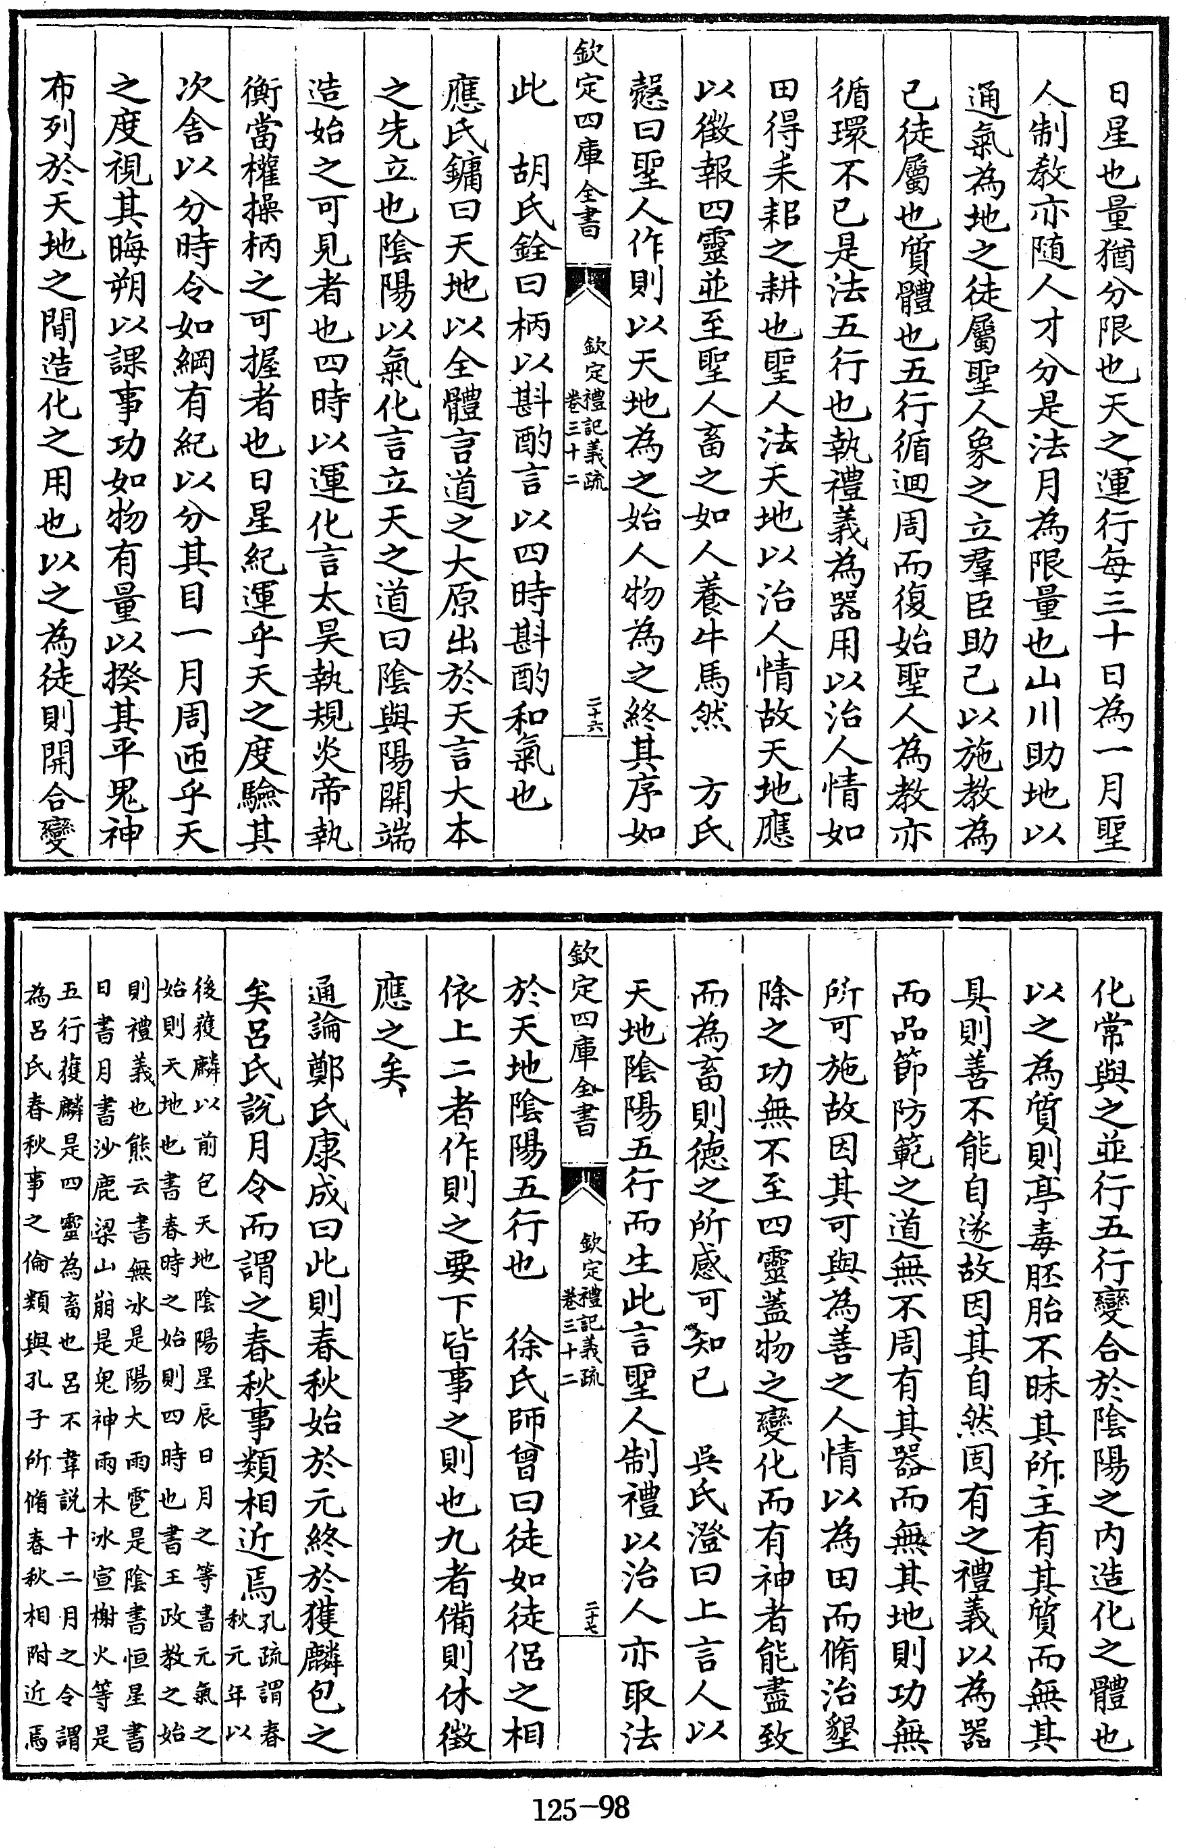 日星也量猶分限也天之運行每三十日為一月聖
人制教亦随人才分是法月為限量也山川助地以
通氣為地之徒屬聖人象之立羣臣助己以施教為
己徒屬也質體也五行循迴周而復始聖人為教亦
循環不已是法五行也執禮義為器用以治人情如
田得耒耜之耕也聖人法天地以治人情故天地應
以徵報四靈並至聖人畜之如人養牛馬然　方氏
慤曰聖人作則以天地為之始人物為之終其序如
欽定四庫全書
欽定禮記義疏
卷三十二
二十六
此　胡氏銓曰柄以斟酌言以四時斟酌和氣也
應氏鏞曰天地以全體言道之大原出於天言大本
之先立也陰陽以氣化言立天之道曰陰與陽開端
造始之可見者也四時以運化言太昊執規炎帝執
衡當權操柄之可握者也日星紀運乎天之度驗其
次舍以分時令如綱有紀以分其目一月周匝乎天
之度視其晦朔以課事功如物有量以揆其平鬼神
布列於天地之間造化之用也以之為徒則開合變
化常與之並行五行變合於陰陽之内造化之體也
以之為質則亭毒胚胎不昧其所主有其質而無其
具則善不能自遂故因其自然固有之禮義以為器
而品節防範之道無不周有其器而無其地則功無
所可施故因其可與為善之人情以為田而脩治墾
除之功無不至四靈蓋物之變化而有神者能盡致
而為畜則德之所感可知已　吳氏澄曰上言人以
天地陰陽五行而生此言聖人制禮以治人亦取法
欽定四庫全書
欽定禮記義疏
卷三十二
二十七
於天地陰陽五行也　徐氏師曾曰徒如徒侶之相
依上二者作則之要下皆事之則也九者備則休徵
應之矣
通論鄭氏康成曰此則春秋始於元終於獲麟包之
矣呂氏説月令而謂之春秋事類相近焉
孔疏謂春
秋元年以
後獲麟以前包天地陰陽星辰日月之等書元氣之
始則天地也書春時之始則四時也書王政教之始
則禮義也熊云書無冰是陽大雨雹是陰書恒星書
日書月書沙鹿梁山崩是鬼神雨木冰宣榭火等是
五行獲麟是四靈為畜也呂不韋説十二月之令謂
為呂氏春秋事之倫類與孔子所脩春秋相附近焉
125-98